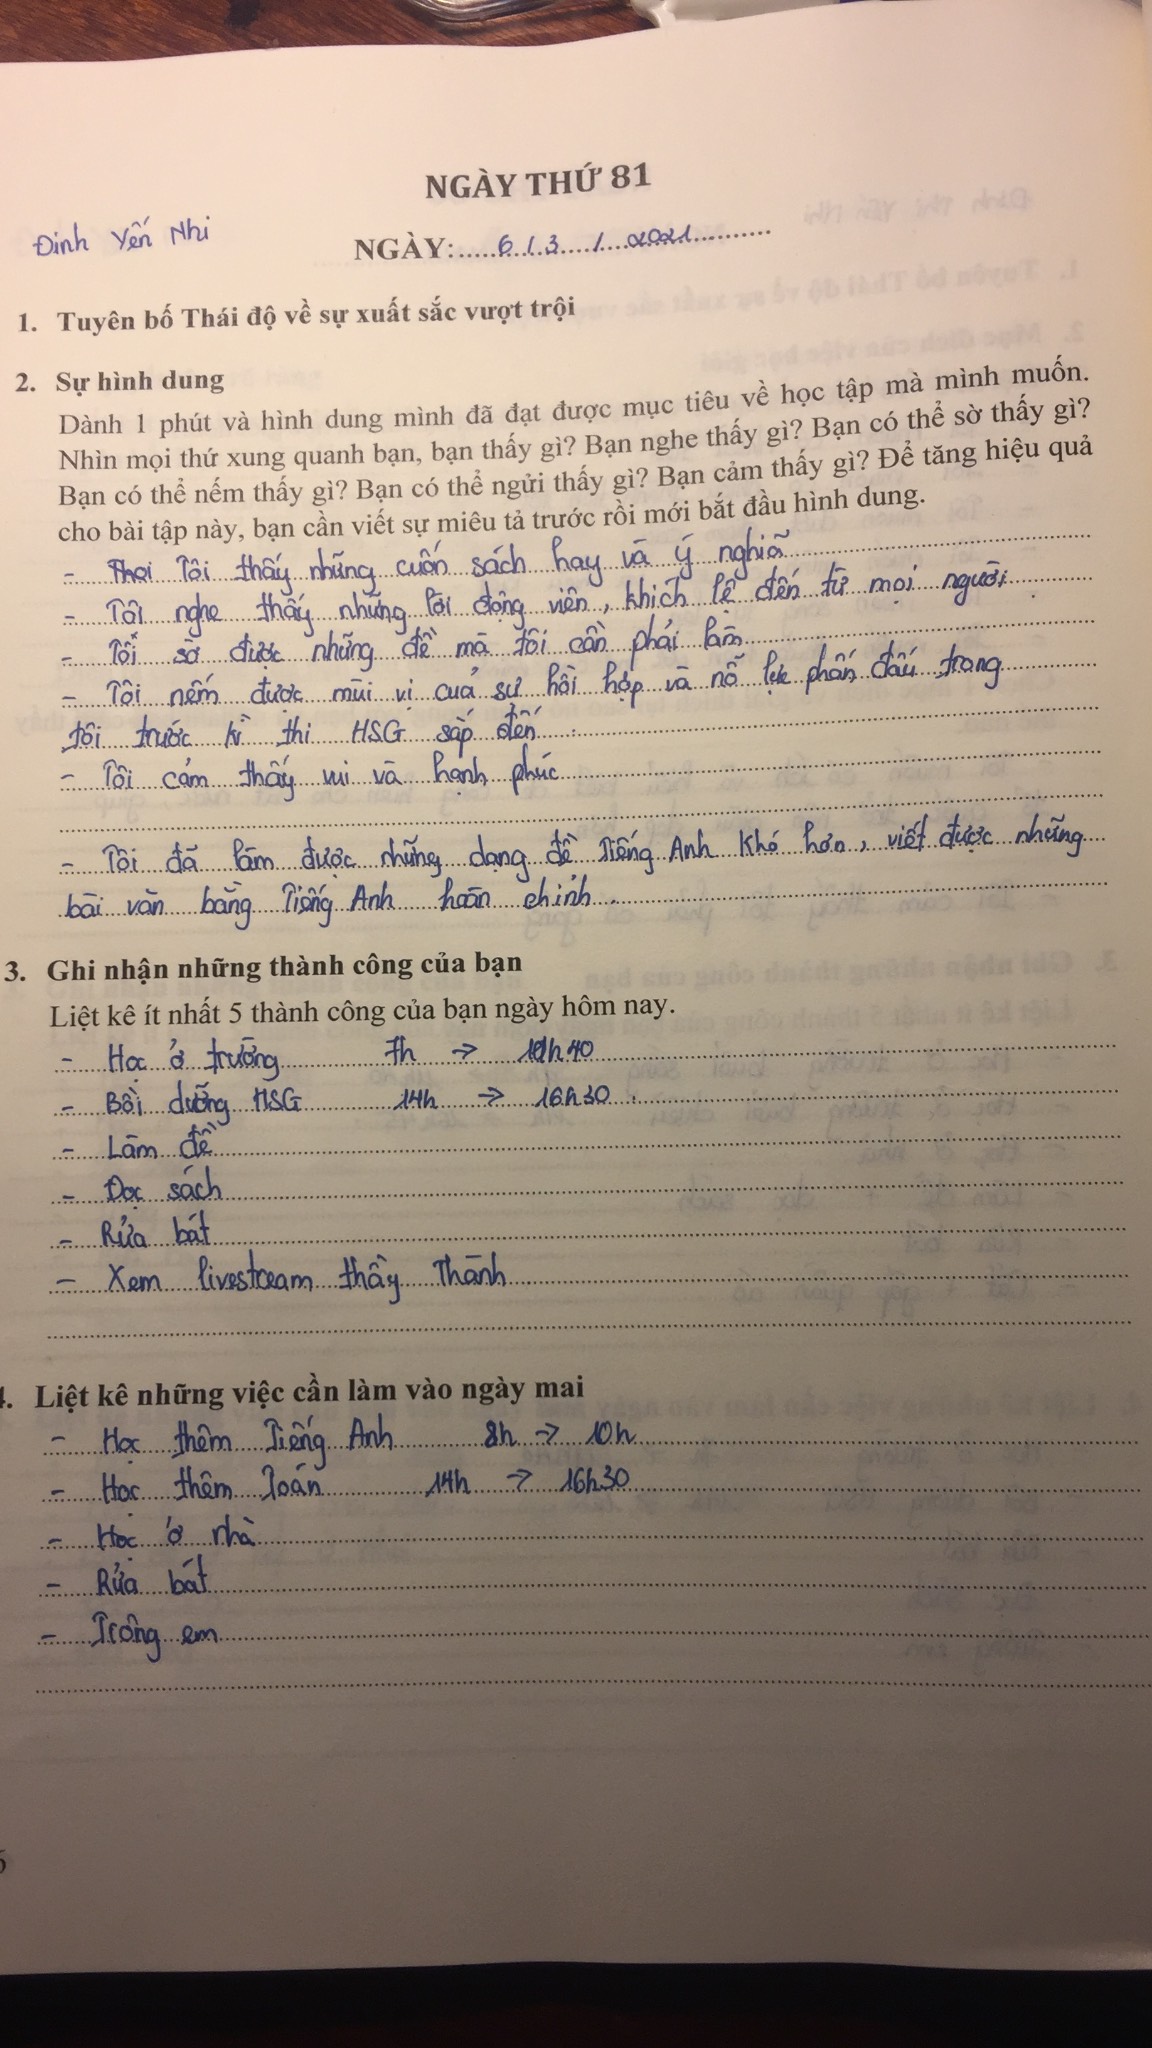 NGÀY THỨ 81
Đinh Yến Nhi
NGÀY:.....6./.3..../....2021............
1. Tuyên bố Thái độ về sự xuất sắc vượt trội
2. Sự hình dung
Dành 1 phút và hình dung mình đã đạt được mục tiêu về học tập mà mình muốn.
Nhìn mọi thứ xung quanh bạn, bạn thấy gì? Bạn nghe thấy gì? Bạn có thể sờ thấy gì?
Bạn có thể nếm thấy gì? Bạn có thể ngửi thấy gì? Bạn cảm thấy gì? Để tăng hiệu quả
cho bài tập này, bạn cần viết sự miêu tả trước rồi mới bắt đầu hình dung.
- Tôi thấy những cuốn sách hay và ý nghiã
- Tôi nghe thấy những lời động viên, khích lệ đến từ mọi người.
- Tôi sờ được những đề mà tôi cần phải làm
- Tôi nếm được mùi vị cuả sự hồi hộp và nỗ lực phấn đấu trong
tôi trước kì thi HSG sắp đến.
- Tôi cảm thấy vui và hạnh phúc
- Tôi đã làm được những dạng đề Tiếng Anh khó hơn, viết được những
bài văn bằng Tiếng Anh hoàn chỉnh.
3. Ghi nhận những thành công của bạn
Liệt kê ít nhất 5 thành công của bạn ngày hôm nay.
- Học ở trường 7h → h40
- Bồi dưỡng HSG 14h → 16h30.
- Làm đề
- Đọc sách
- Rửa bát
- Xem livestream thầy Thành
4. Liệt kê những việc cần làm vào ngày mai
- Học thêm Tiếng Anh 8h → 10h
- Học thêm Toán 14h → 16h30
- Học ở nhà
- Rửa bát
- Trông em